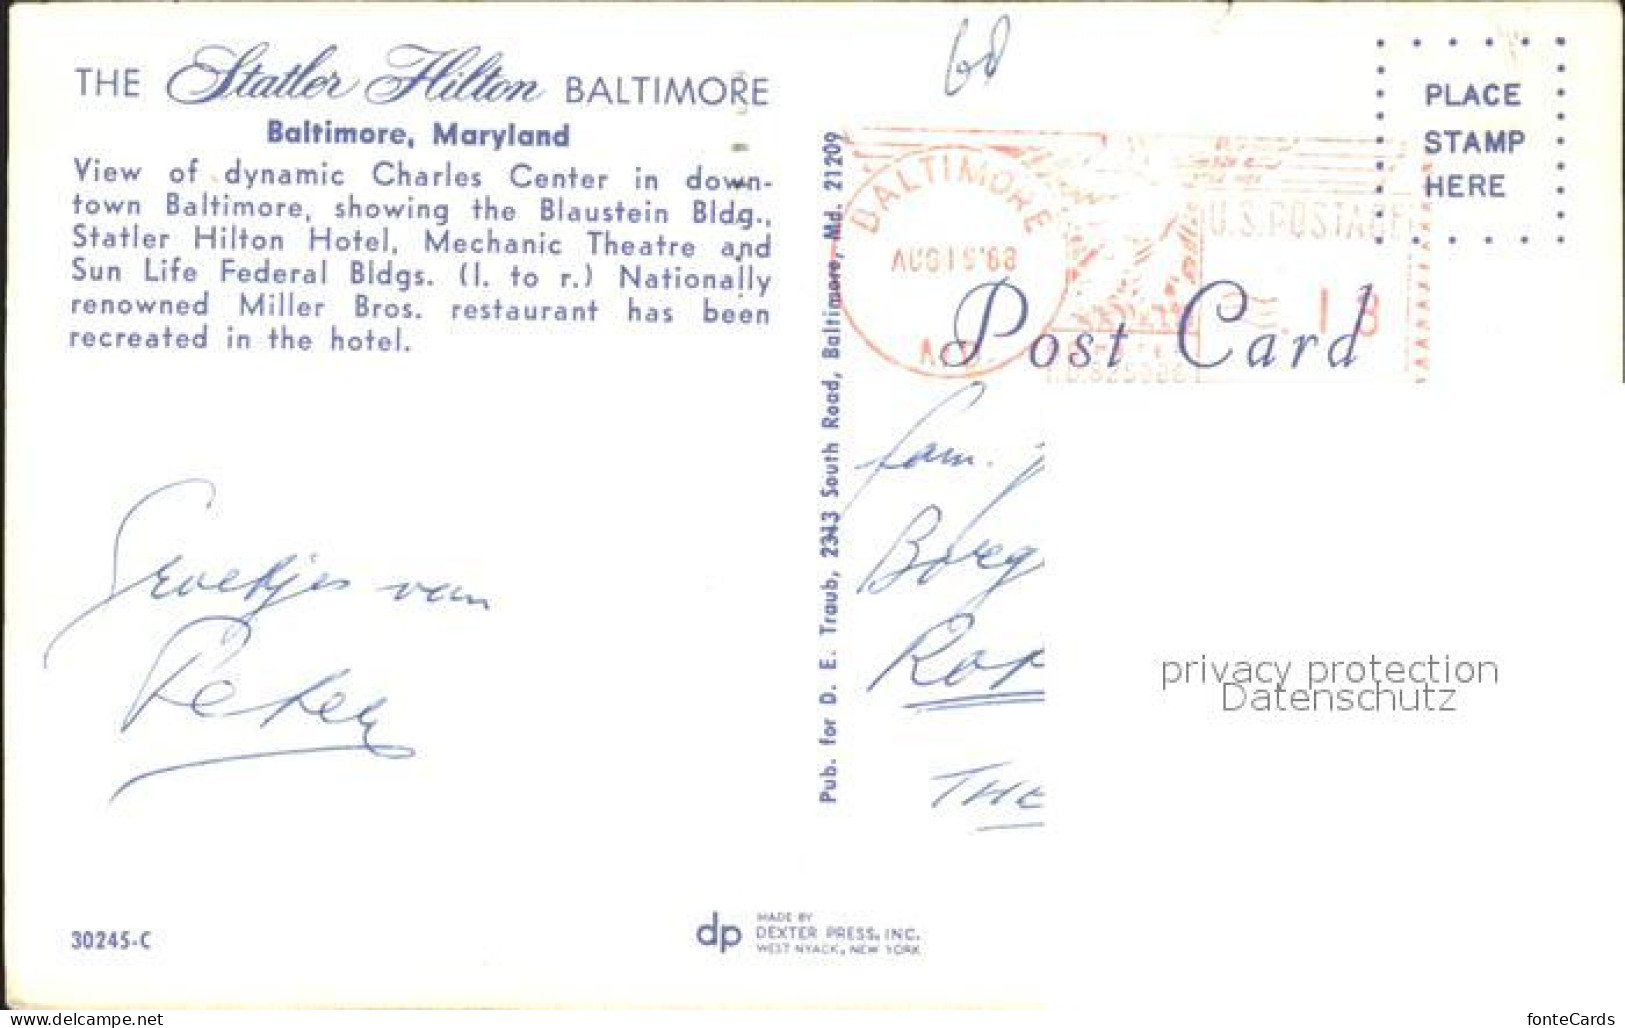 THE Statler Hilton BALTIMORE
Baltimore, Maryland
View of dynamic Charles Center in down-
town Baltimore, showing the Blaustein Bldg.,
Statler Hilton Hotel, Mechanic Theatre and
Sun Life Federal Bldgs. (l. to r.) Nationally
renowned Miller Bros. restaurant has been
recreated in the hotel.
Groetjes van
Peter
30245-C
Pub. for D. E. Traub, 2313 South Road, Baltimore, Md. 21209
dp
MADE BY
DEXTER PRESS, INC.
WEST NYACK, NEW YORK
PLACE
STAMP
HERE
BALTIMORE
AUG
U.S. POSTAGE
.13
Post Card
fam.
Boreg
THE
privacy protection
Datenschutz
www.delcampe.net
fonteCards